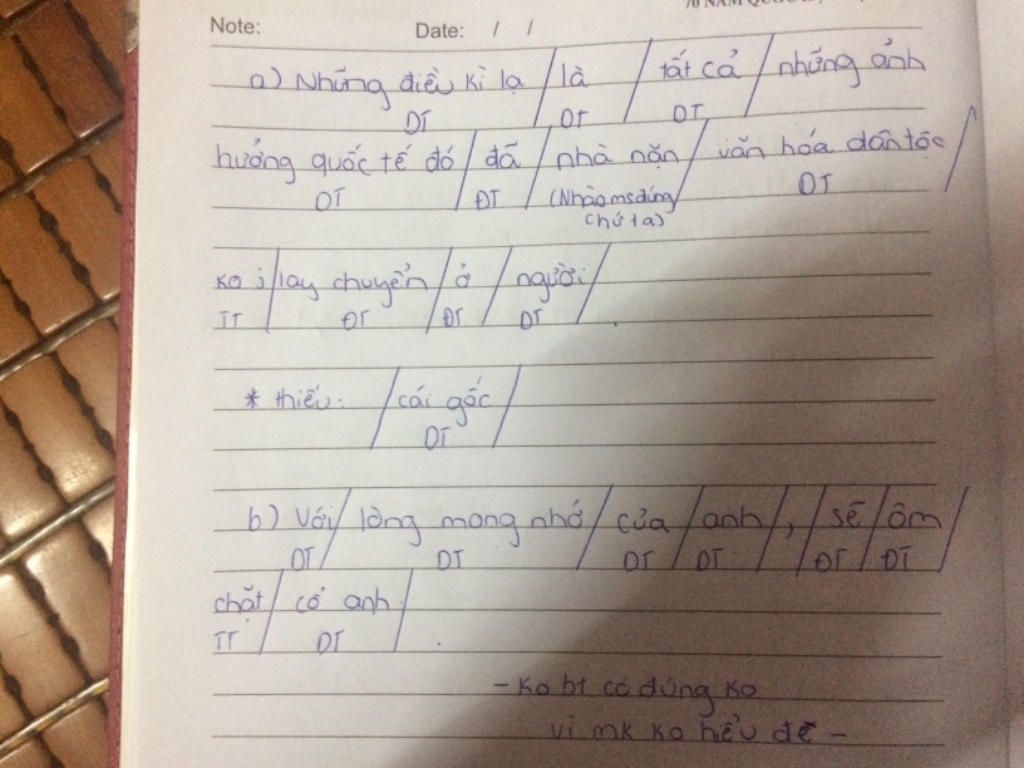 Note: Date: / /
a) Những điều kì lạ / là / tất cả / những ảnh
DT ĐT DT
hưởng quốc tế đó / đã / nhà nặn / văn hóa dân tộc /
DT ĐT (Nhào ms đúng DT
chứ ta)
ko i / lay chuyển / ở / người /
TT ĐT ĐT DT
* thiếu: / cái gốc /
DT
b) Với / lòng mong nhớ / của / anh / , / sẽ / ôm /
DT DT DT DT ĐT ĐT
chặt / cổ anh /.
TT DT
- Ko bt có đúng ko
vì mk ko hểu đề -